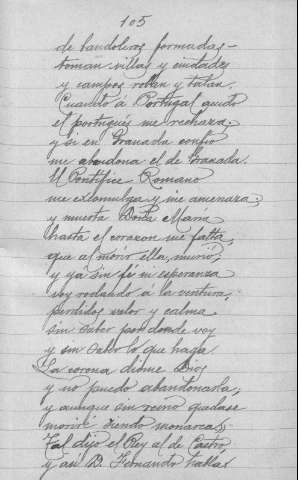 105
de bandoleros formadas
toman villas y ciudades
y campos roban y talan.
Cuando á Portugal acudo
el portugués me rechaza;
y si en Granada confio
me abandona el de Granada.
El Pontífice Romano
me excomulga y me amenaza;
y muerta Doña María
hasta el corazon me falta,
que al morir ella, murió,
y ya sin fé ni esperanza
voy rodando á la ventura,
perdidos valor y calma
sin saber por donde voy
y sin saber lo que haga.
La corona dióme Dios
y no puedo abandonarla,
y aunque sin reino quedase
moriré siendo monarca.
Tal dijo el Rey al de Castro
y así D. Fernando habla: